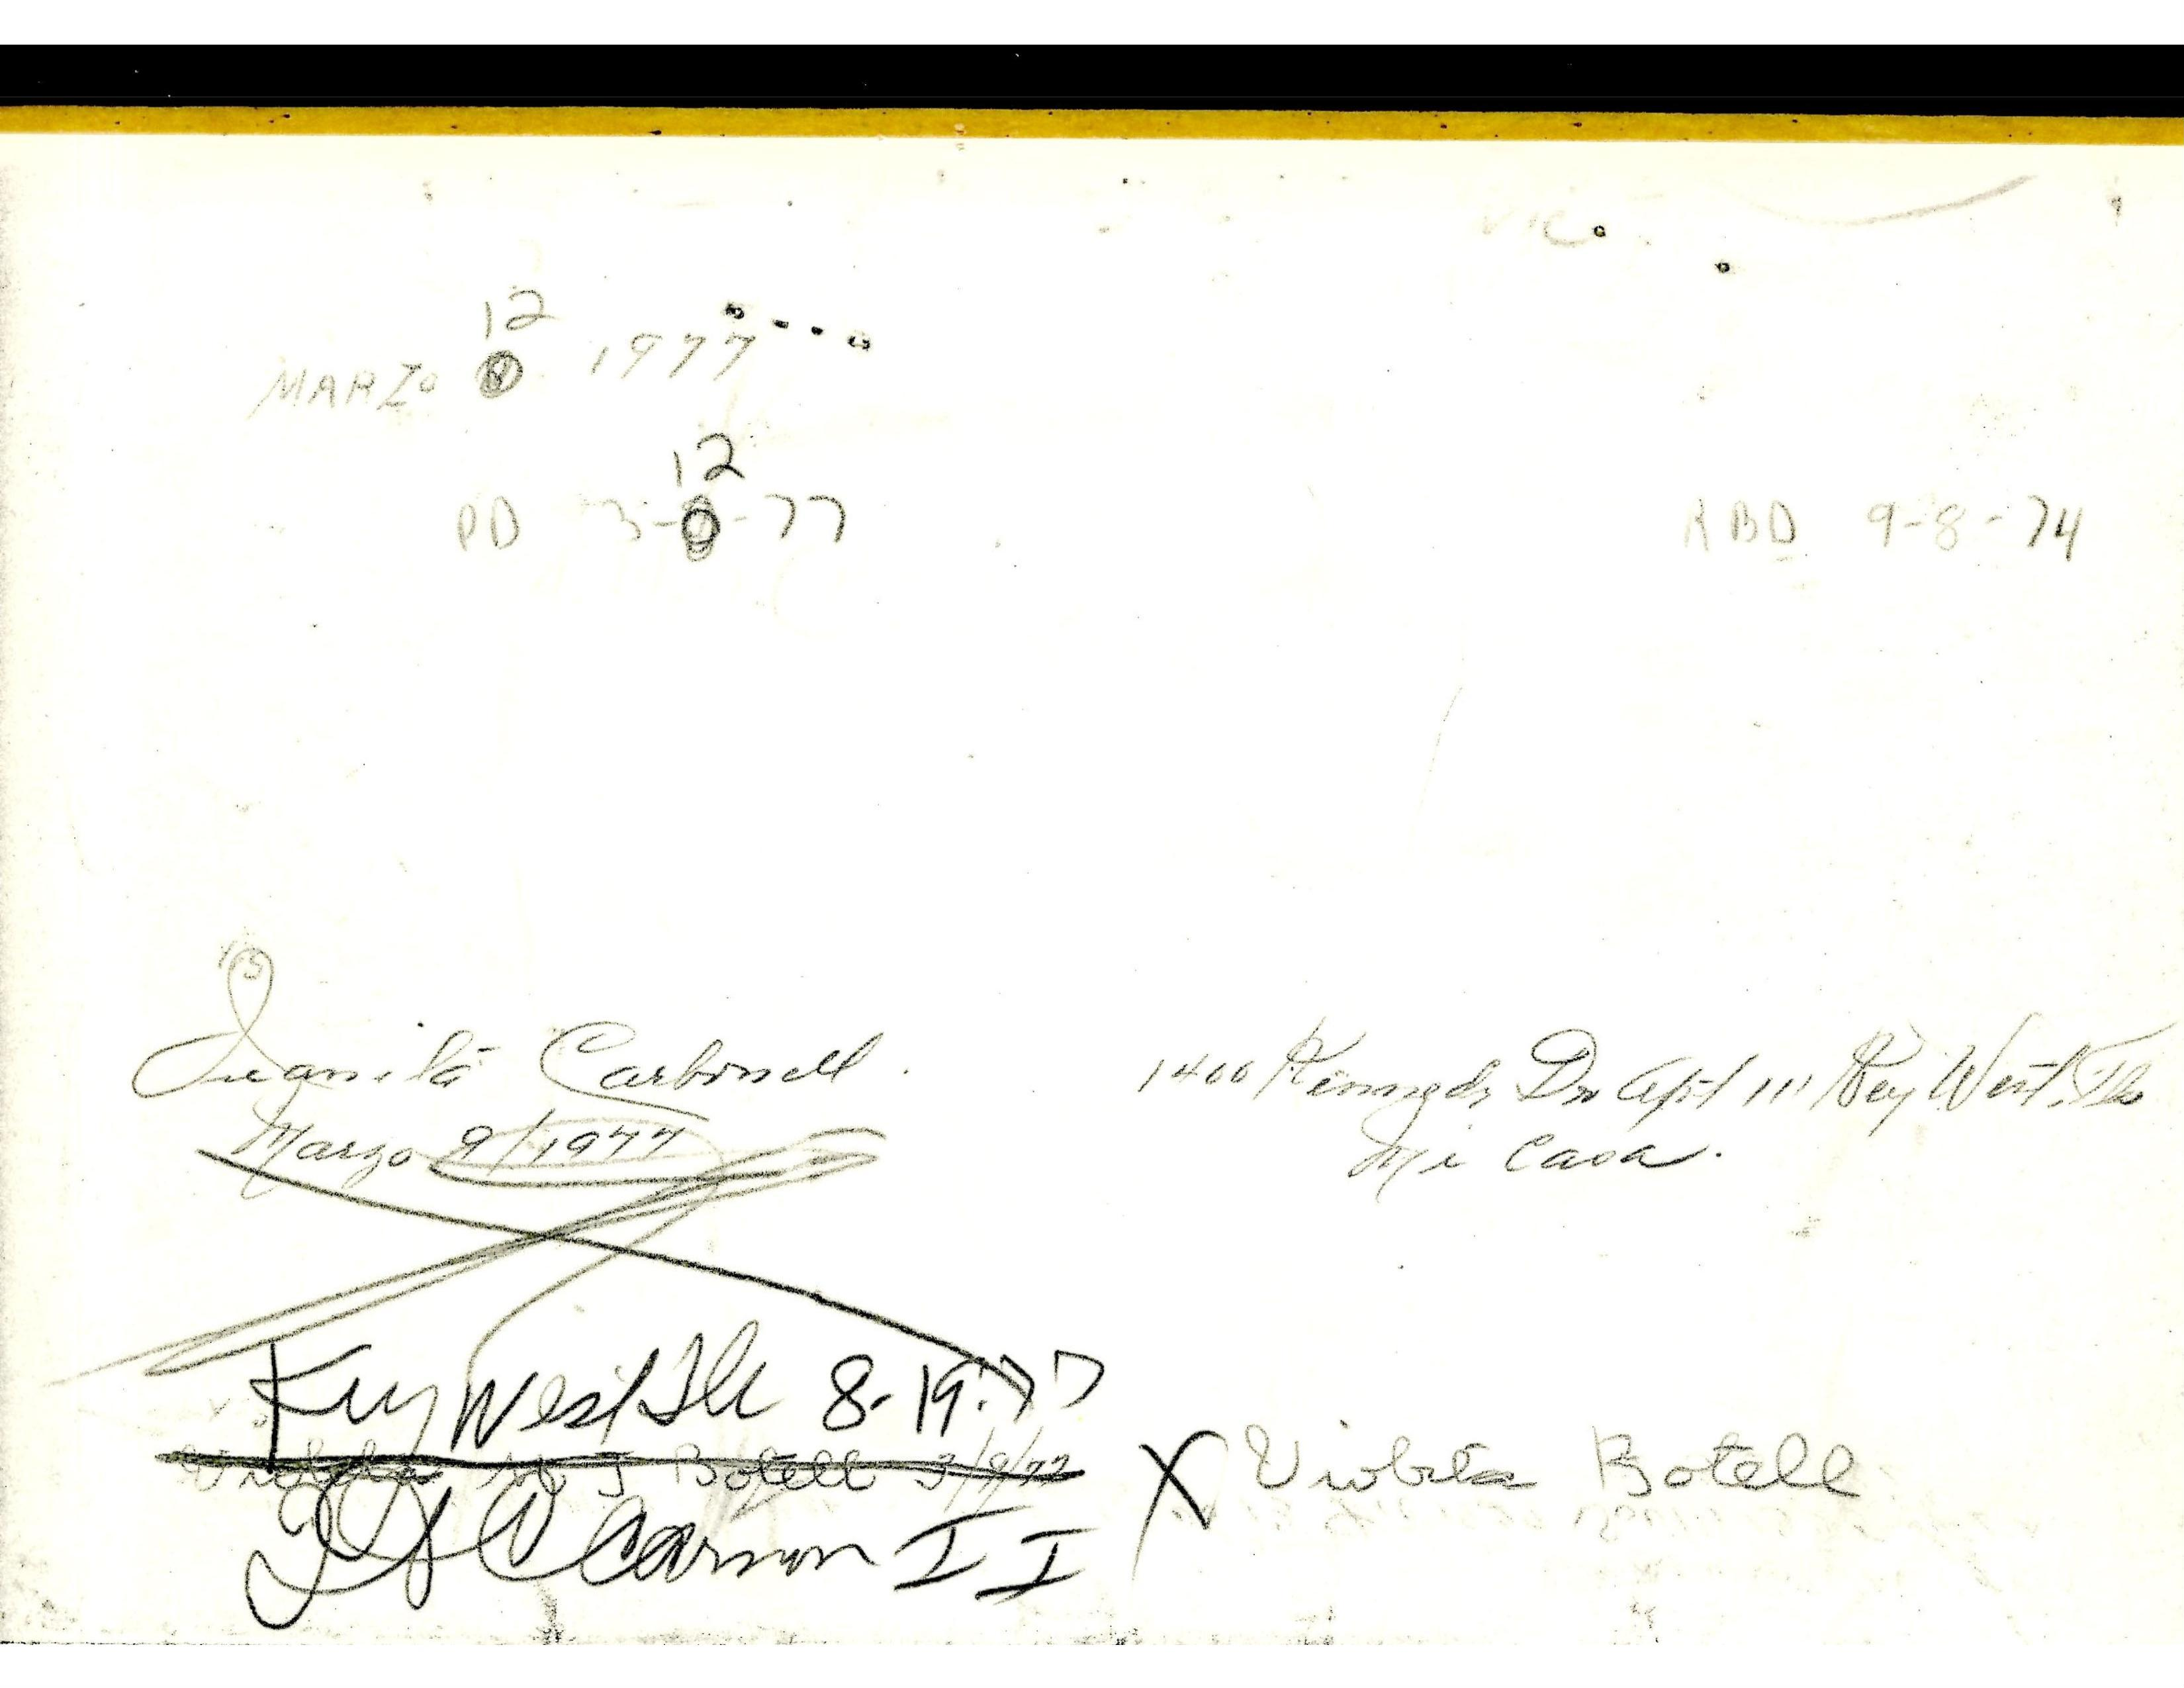 12
MARZO 1977
12
PD 3-8-77
RBD 9-8-74
Juanita Carbonell.
Marzo 9/1977
1400 Kennedy Dr Apt 111 Key West. Fla
Mi Casa.
Key West Fla 8-19-77
Botell 3/9/77
X Violeta Botell
Carson II